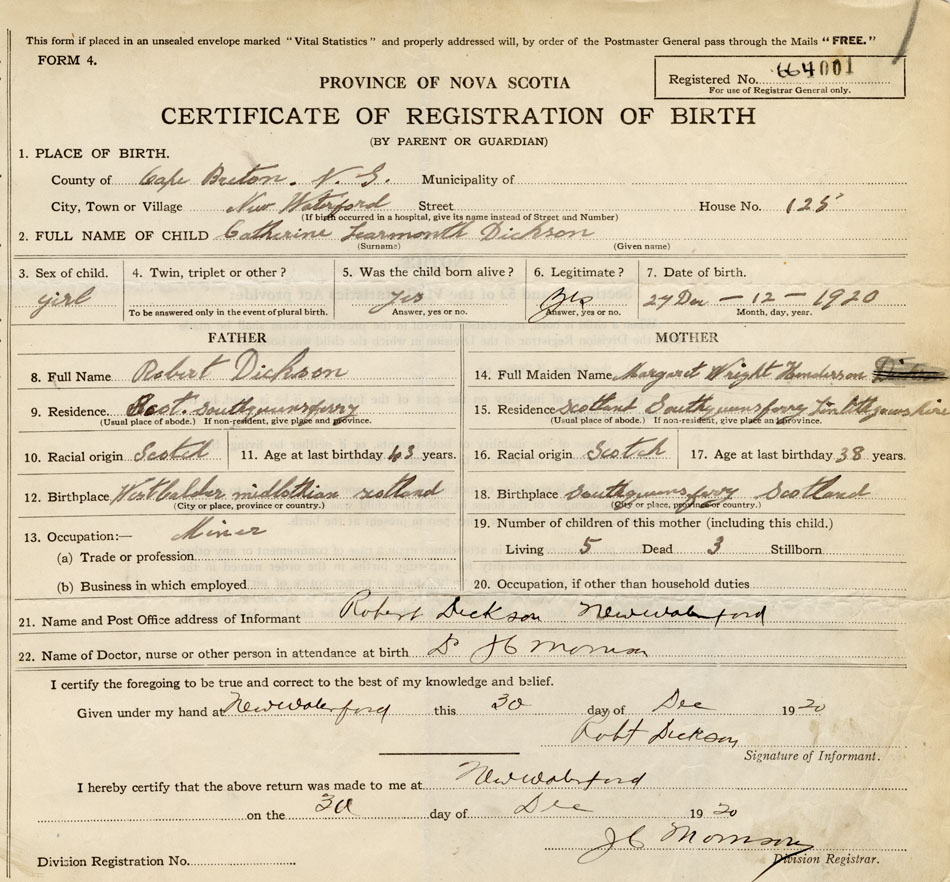 This form if placed in an unsealed envelope marked "Vital Statistics" and properly addressed will, by order of the Postmaster General pass through the Mails "FREE."
FORM 4.
Registered No. 664001
For use of Registrar General only.
PROVINCE OF NOVA SCOTIA
CERTIFICATE OF REGISTRATION OF BIRTH
(BY PARENT OR GUARDIAN)
1. PLACE OF BIRTH.
County of Cape Breton. N. S. Municipality of
City, Town or Village New Waterford Street House No. 125
(If birth occurred in a hospital, give its name instead of Street and Number)
2. FULL NAME OF CHILD Catherine Learmonth Dickson
(Surname) (Given name)
3. Sex of child. 4. Twin, triplet or other? 5. Was the child born alive? 6. Legitimate? 7. Date of birth.
girl yes Yes 27 Dec - 12 - 1920
To be answered only in the event of plural birth. Answer, yes or no. Answer, yes or no. Month, day, year.
FATHER MOTHER
8. Full Name Robert Dickson 14. Full Maiden Name Margaret Wright Henderson
9. Residence Scot. Southqueensferry 15. Residence Scotland Southqueensferry Linlithgowshire
(Usual place of abode.) If non-resident, give place and province. (Usual place of abode.) If non-resident, give place and province.
10. Racial origin Scotch 11. Age at last birthday 43 years. 16. Racial origin Scotch 17. Age at last birthday 38 years.
12. Birthplace West Calder midlothian scotland 18. Birthplace Southqueensferry Scotland
(City or place, province or country.) (City or place, province or country.)
13. Occupation:— Miner 19. Number of children of this mother (including this child.)
(a) Trade or profession Living 5 Dead 3 Stillborn
(b) Business in which employed 20. Occupation, if other than household duties
21. Name and Post Office address of Informant Robert Dickson New Waterford
22. Name of Doctor, nurse or other person in attendance at birth Dr J C Morrison
I certify the foregoing to be true and correct to the best of my knowledge and belief.
Given under my hand at New Waterford this 30 day of Dec 1920
Robt Dickson
Signature of Informant.
I hereby certify that the above return was made to me at New Waterford
on the 30 day of Dec 1920
J C Morrison
Division Registration No. Division Registrar.